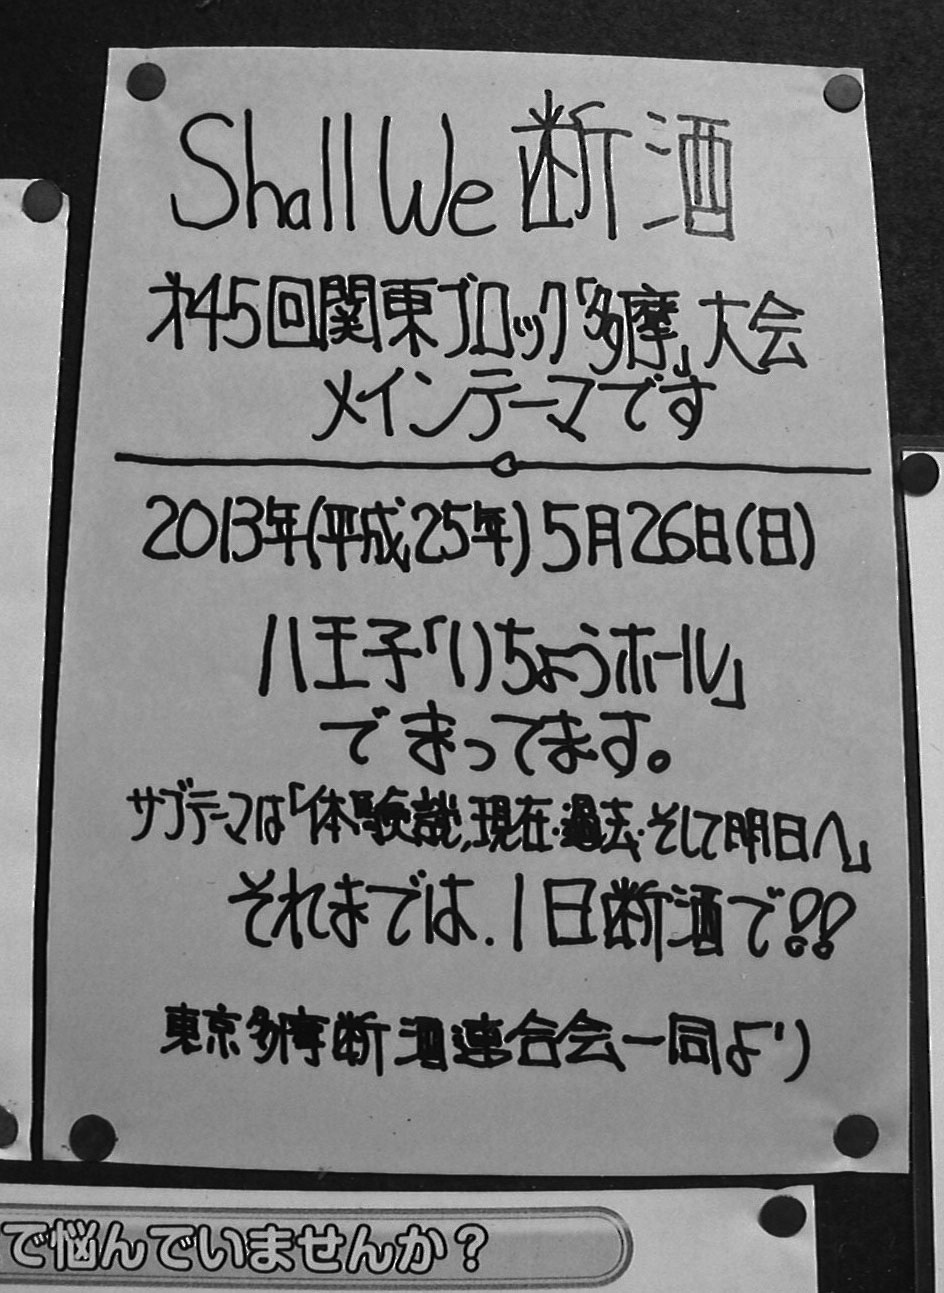 Shall We 断酒
才45回関東ブロック「多摩」大会
メインテーマです
2013年(平成25年)5月26日(日)
八王子「いちょうホール」
でまってます。
サブテーマは「体験談、現在・過去・そして明日へ」
それまでは、1日断酒で!!
東京多摩断酒連合会一同より
で悩んでいませんか？